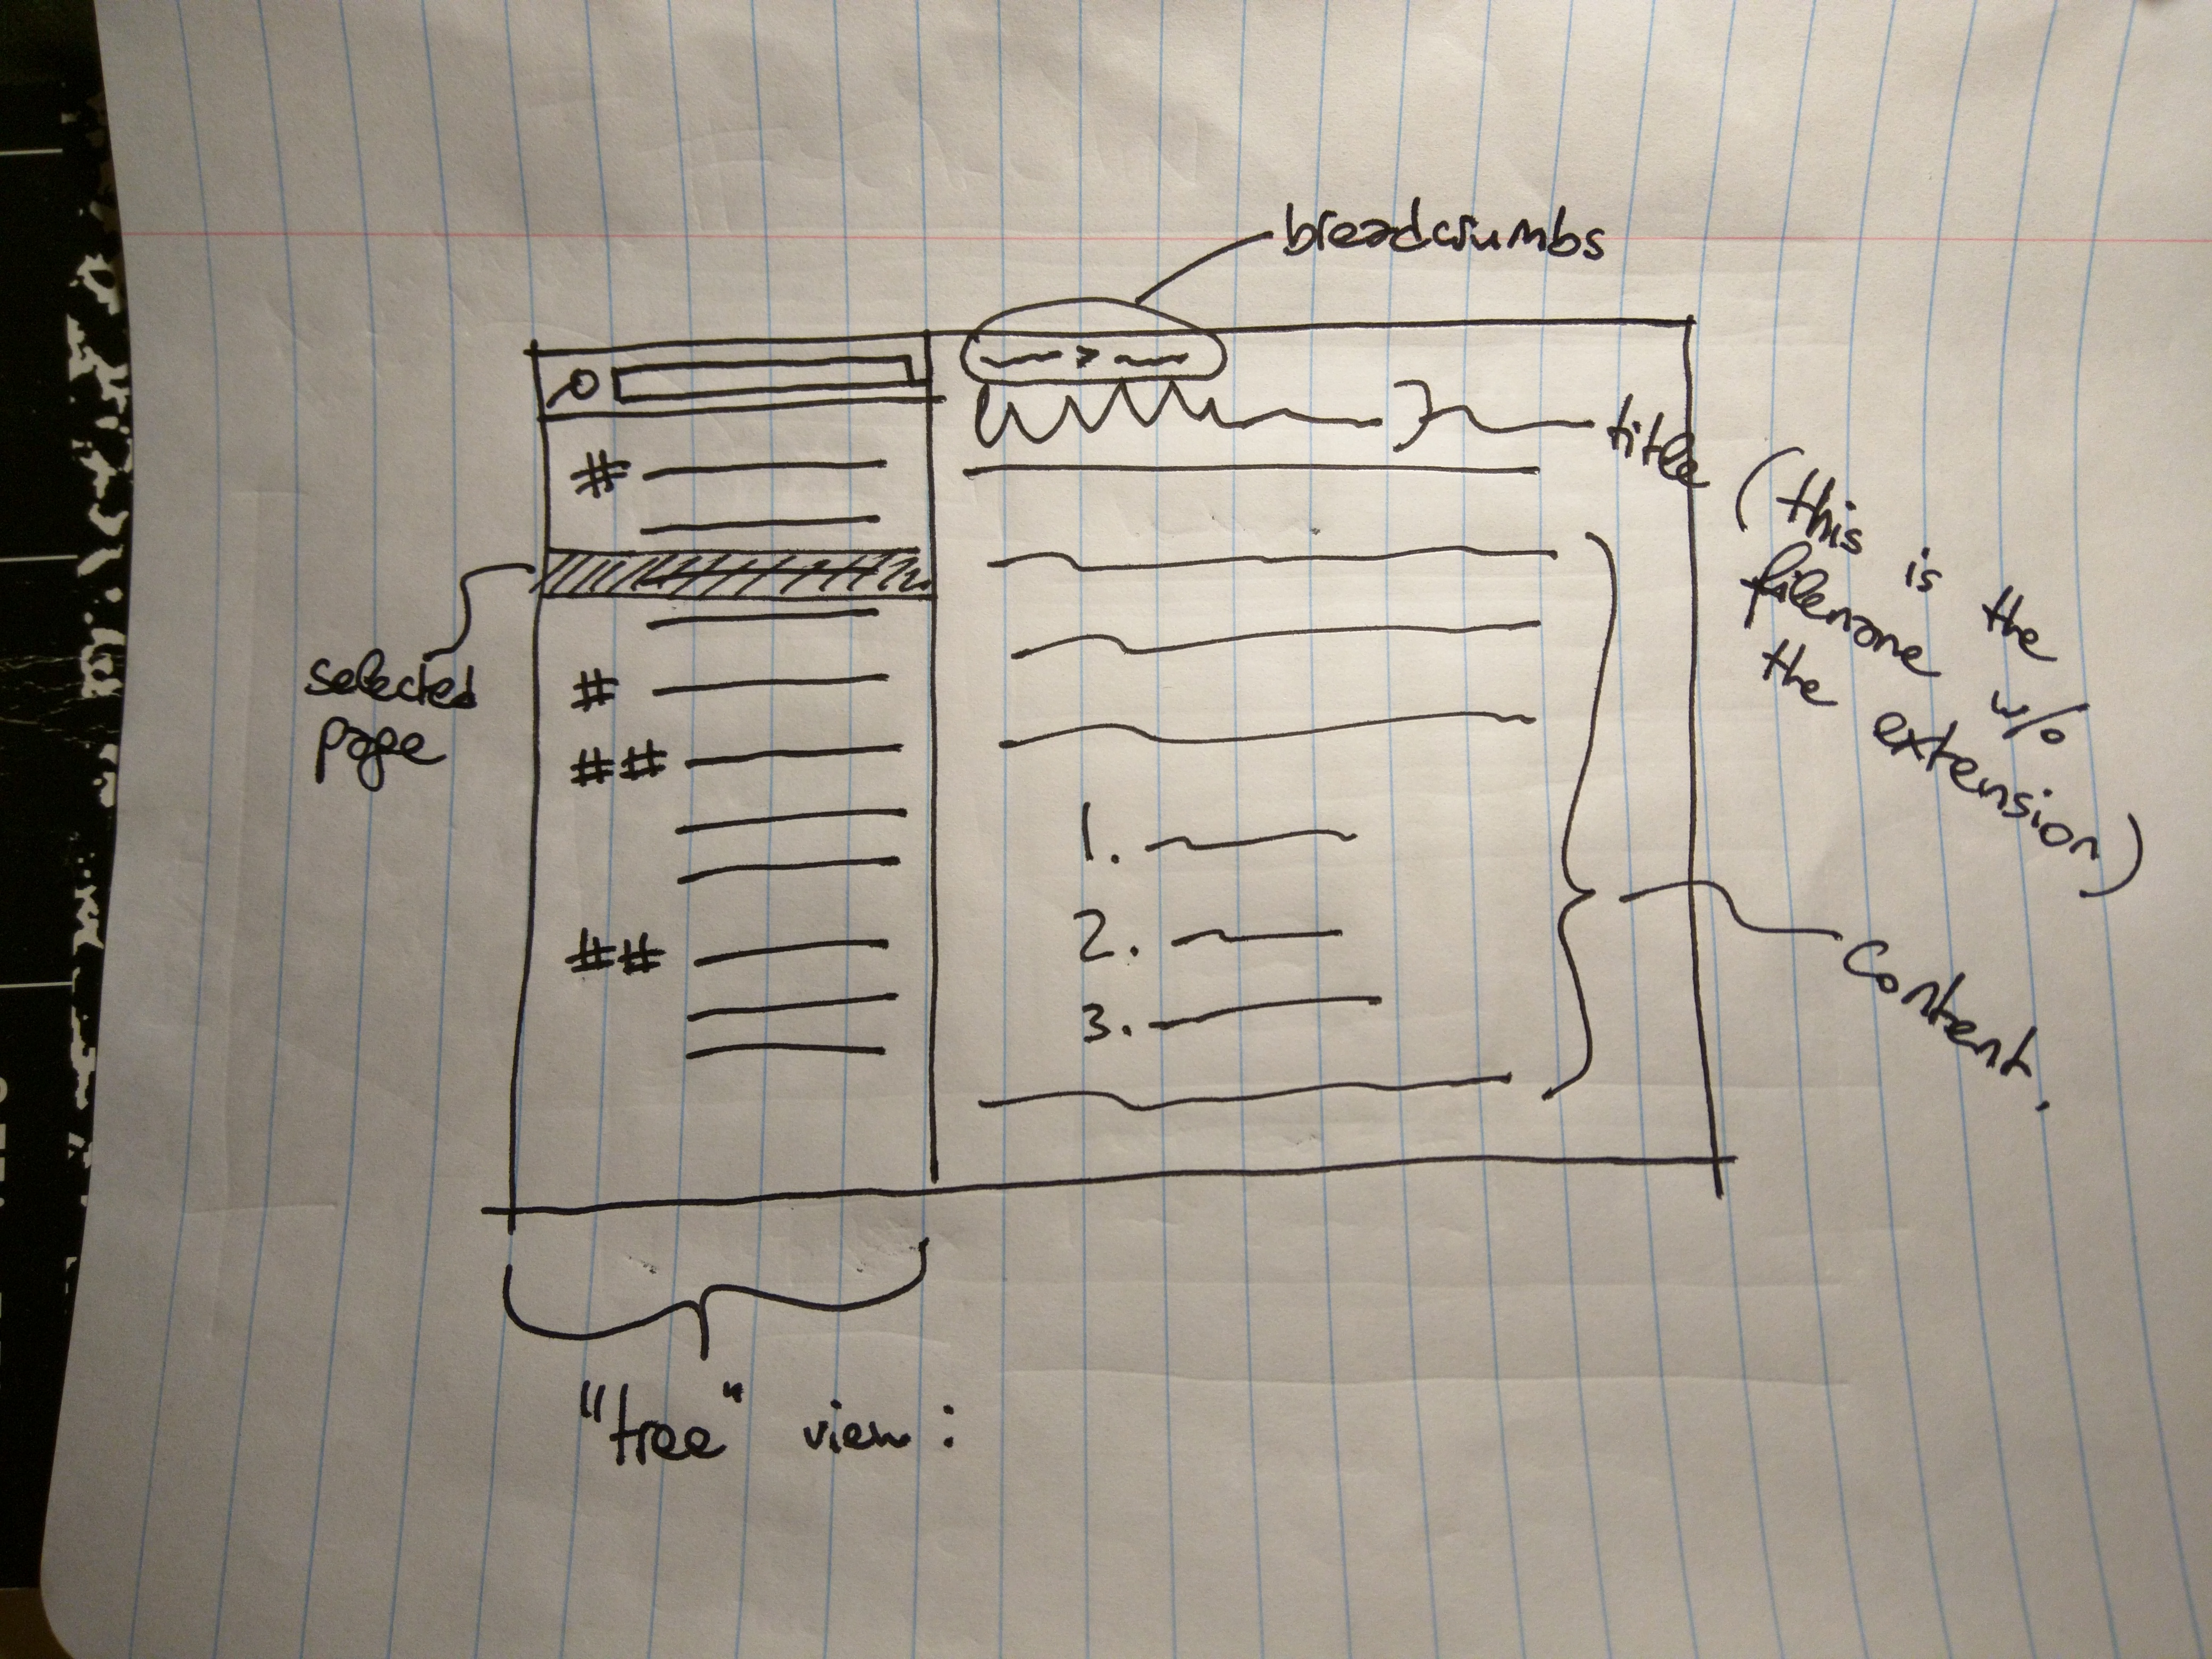 breadcrumbs
>
title (this is the
filename w/o
the extension)
#
selected
page
#
##
1.
2.
##
3.
content.
"tree" view: